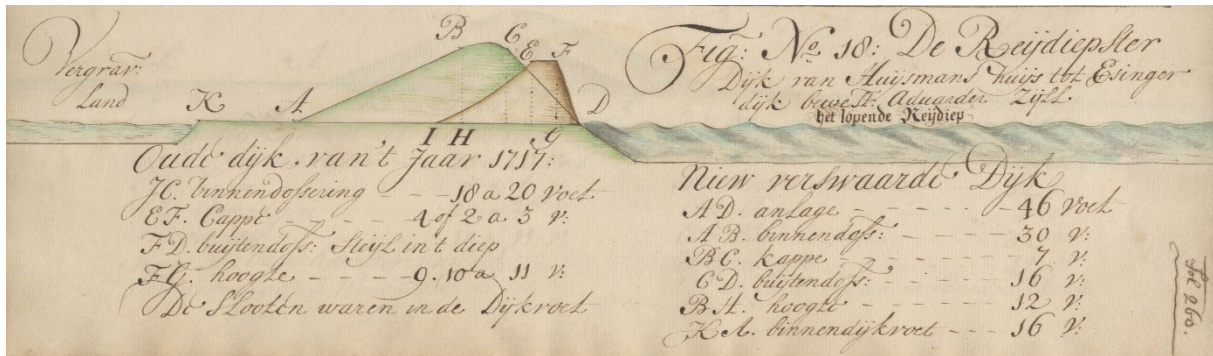 Vergrav:
Land
K A B C E F D
I H G
Fig: No. 18: De Reijdiepster
Dijk van Huijsmans huijs tot Esinger
dijk bewest Aduarder Zijll
het lopende Reijdiep
Oude dijk van't Jaar 1717:
IE. binnendossering - - 18 a 20 voet
EF. Cappe - - - - 4 of 2 a 3 v:
FD. buijtendoss: steijl in't diep
FG. hoogte - - - - 9. 10 a 11 v:
De Slooten waren in de Dijkvoet
Niew verswaarde Dijk
AD. anlage - - - - - 46 voet
AB. binnendoss: - - - - - 30 v:
BC. kappe - - - - - 7 v:
CD. buijtendoss: - - - - 16 v:
BH. hoogte - - - - - 12 v:
KA. binnendijkvoet - - - 16 v:
fol 260.